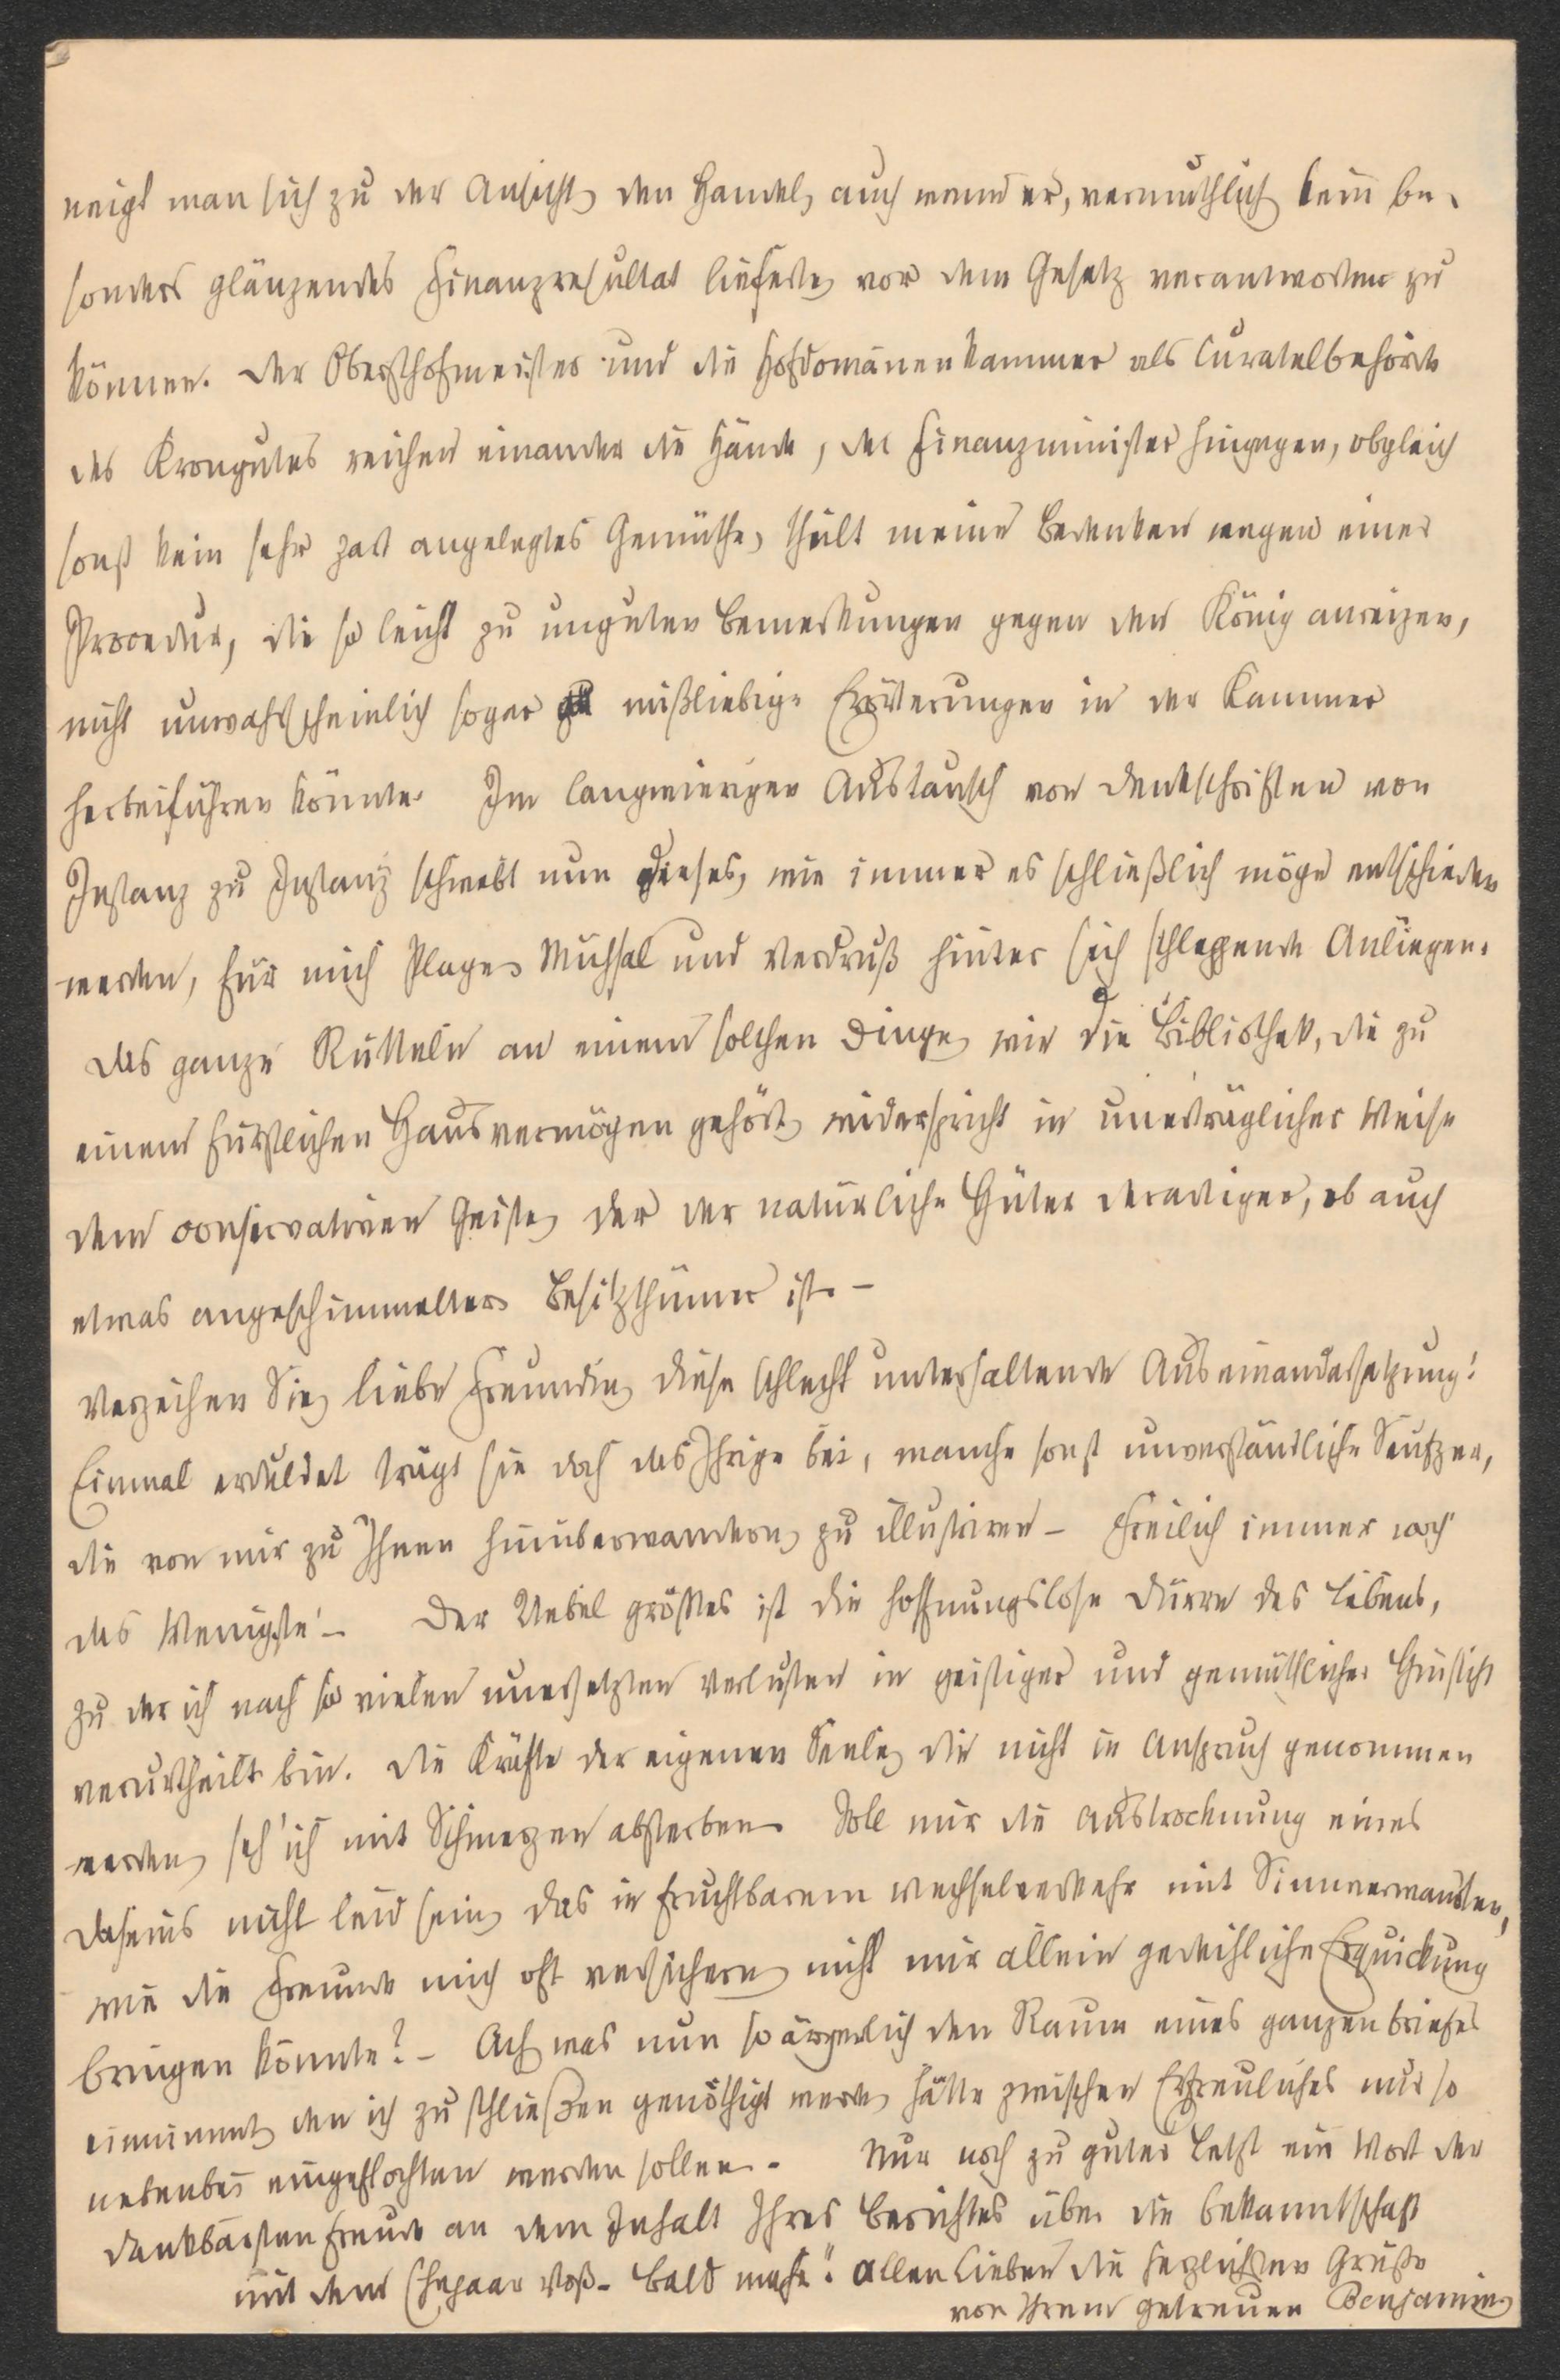 neigt man sich zu der Ansicht, den Handel, auch wenn er, vermuthlich kein be-
sonders glänzendes Finanzresultat lieferte, vor dem Gesetz verantworten zu
können. Der Obersthofmeister und die Hofdomänenkammer als Curatelbehörde
des Krongutes reichen einander die Hände, der Finanzminister hingegen, obgleich
sonst kein sehr zart angelegtes Gemüthe, theilt meine Bedenken wegen einer
Procedur, die so leicht zu unguten Bemerkungen gegen den König anreizen,
nicht unwahrscheinlich sogar mißliebige Erörterungen in der Kammer
herbeiführen könnte. Im langwierigen Austausch von Denkschriften von
Instanz zu Instanz schwebt nun dieses, wie immer es schließlich möge entschieden
werden, für mich Plage, Mühsal und Verdruß hinter sich schleppende Anliegen.
Das ganze Rütteln an einem solchen Dinge, wie die Bibliothek, die zu
einem fürstlichen Hausvermögen gehört, widerspricht in unerträglicher Weise
dem conservativen Geiste, der der natürliche Hüter derartiger, ob auch
etwas angeschimmelter Besitzthümer ist. –
Verzeihen Sie, liebe Freundin, diese schlecht unterhaltende Auseinandersetzung!
Einmal erduldet trägt sie doch das Ihrige bei, manche sonst unverständliche Seufzer,
die von mir zu Ihnen hinüberwandern, zu illustriren – freilich immer noch
das Wenigste! – Der Uebel größtes ist die hoffnungslose Dürre des Lebens,
zu der ich nach so vielen unersetzten Verlusten in geistiger und gemüthlicher Hinsicht
verurtheilt bin. Die Kräfte der eigenen Seele, die nicht in Anspruch genommen
werden, seh' ich mit Schmerzen absterben. Soll mir die Austrocknung eines
Daseins nicht leid sein, das in fruchtbarem Wechselverkehr mit Sinnverwandten,
wie die Freunde mich oft versichern, nicht mir allein gedeihliche Erquickung
bringen könnte? – Ach, was nun so ärgerlich den Raum eines ganzen Briefes
einnimmt, den ich zu schließen genöthigt werde, hätte zwischen Erfreuliches nur so
nebenbei eingeflochten werden sollen. Nur noch zu guter Letzt ein Wort der
dankbarsten Freude an dem Inhalt Ihres Berichtes über die Bekanntschaft
mit dem Ehepaar Voß. Bald mehr! Allen Lieben die herzlichsten Grüße
von Ihrem getreuen Benjamin.